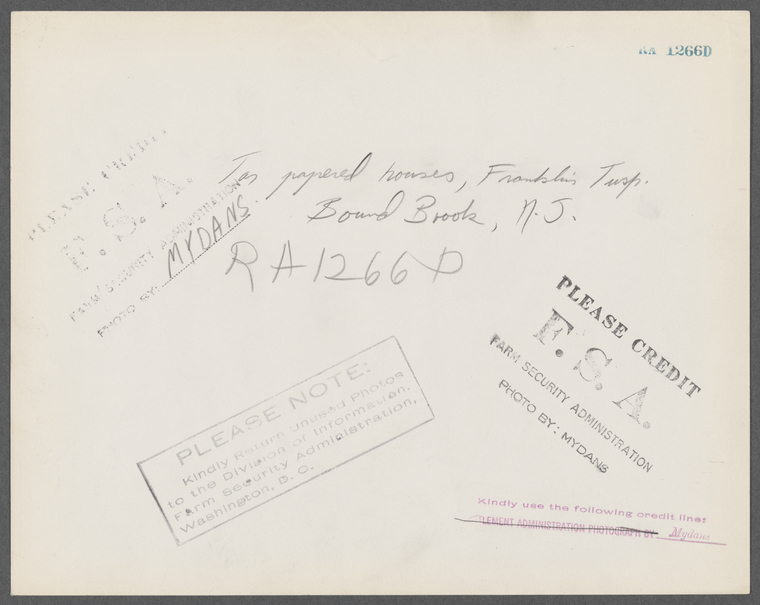 RA 1266D
PLEASE CREDIT
F. S. A.
FARM SECURITY ADMINISTRATION
PHOTO BY: MYDANS
Tar papered houses, Franklin Twsp.
Bound Brook, N.J.
RA1266D
PLEASE CREDIT
F. S. A.
FARM SECURITY ADMINISTRATION
PHOTO BY: MYDANS
PLEASE NOTE:
Kindly Return Unused Photos
to the Division of Information,
Farm Security Administration,
Washington, D. C.
Kindly use the following credit line:
LEMENT ADMINISTRATION PHOTOGRAPH BY Mydans